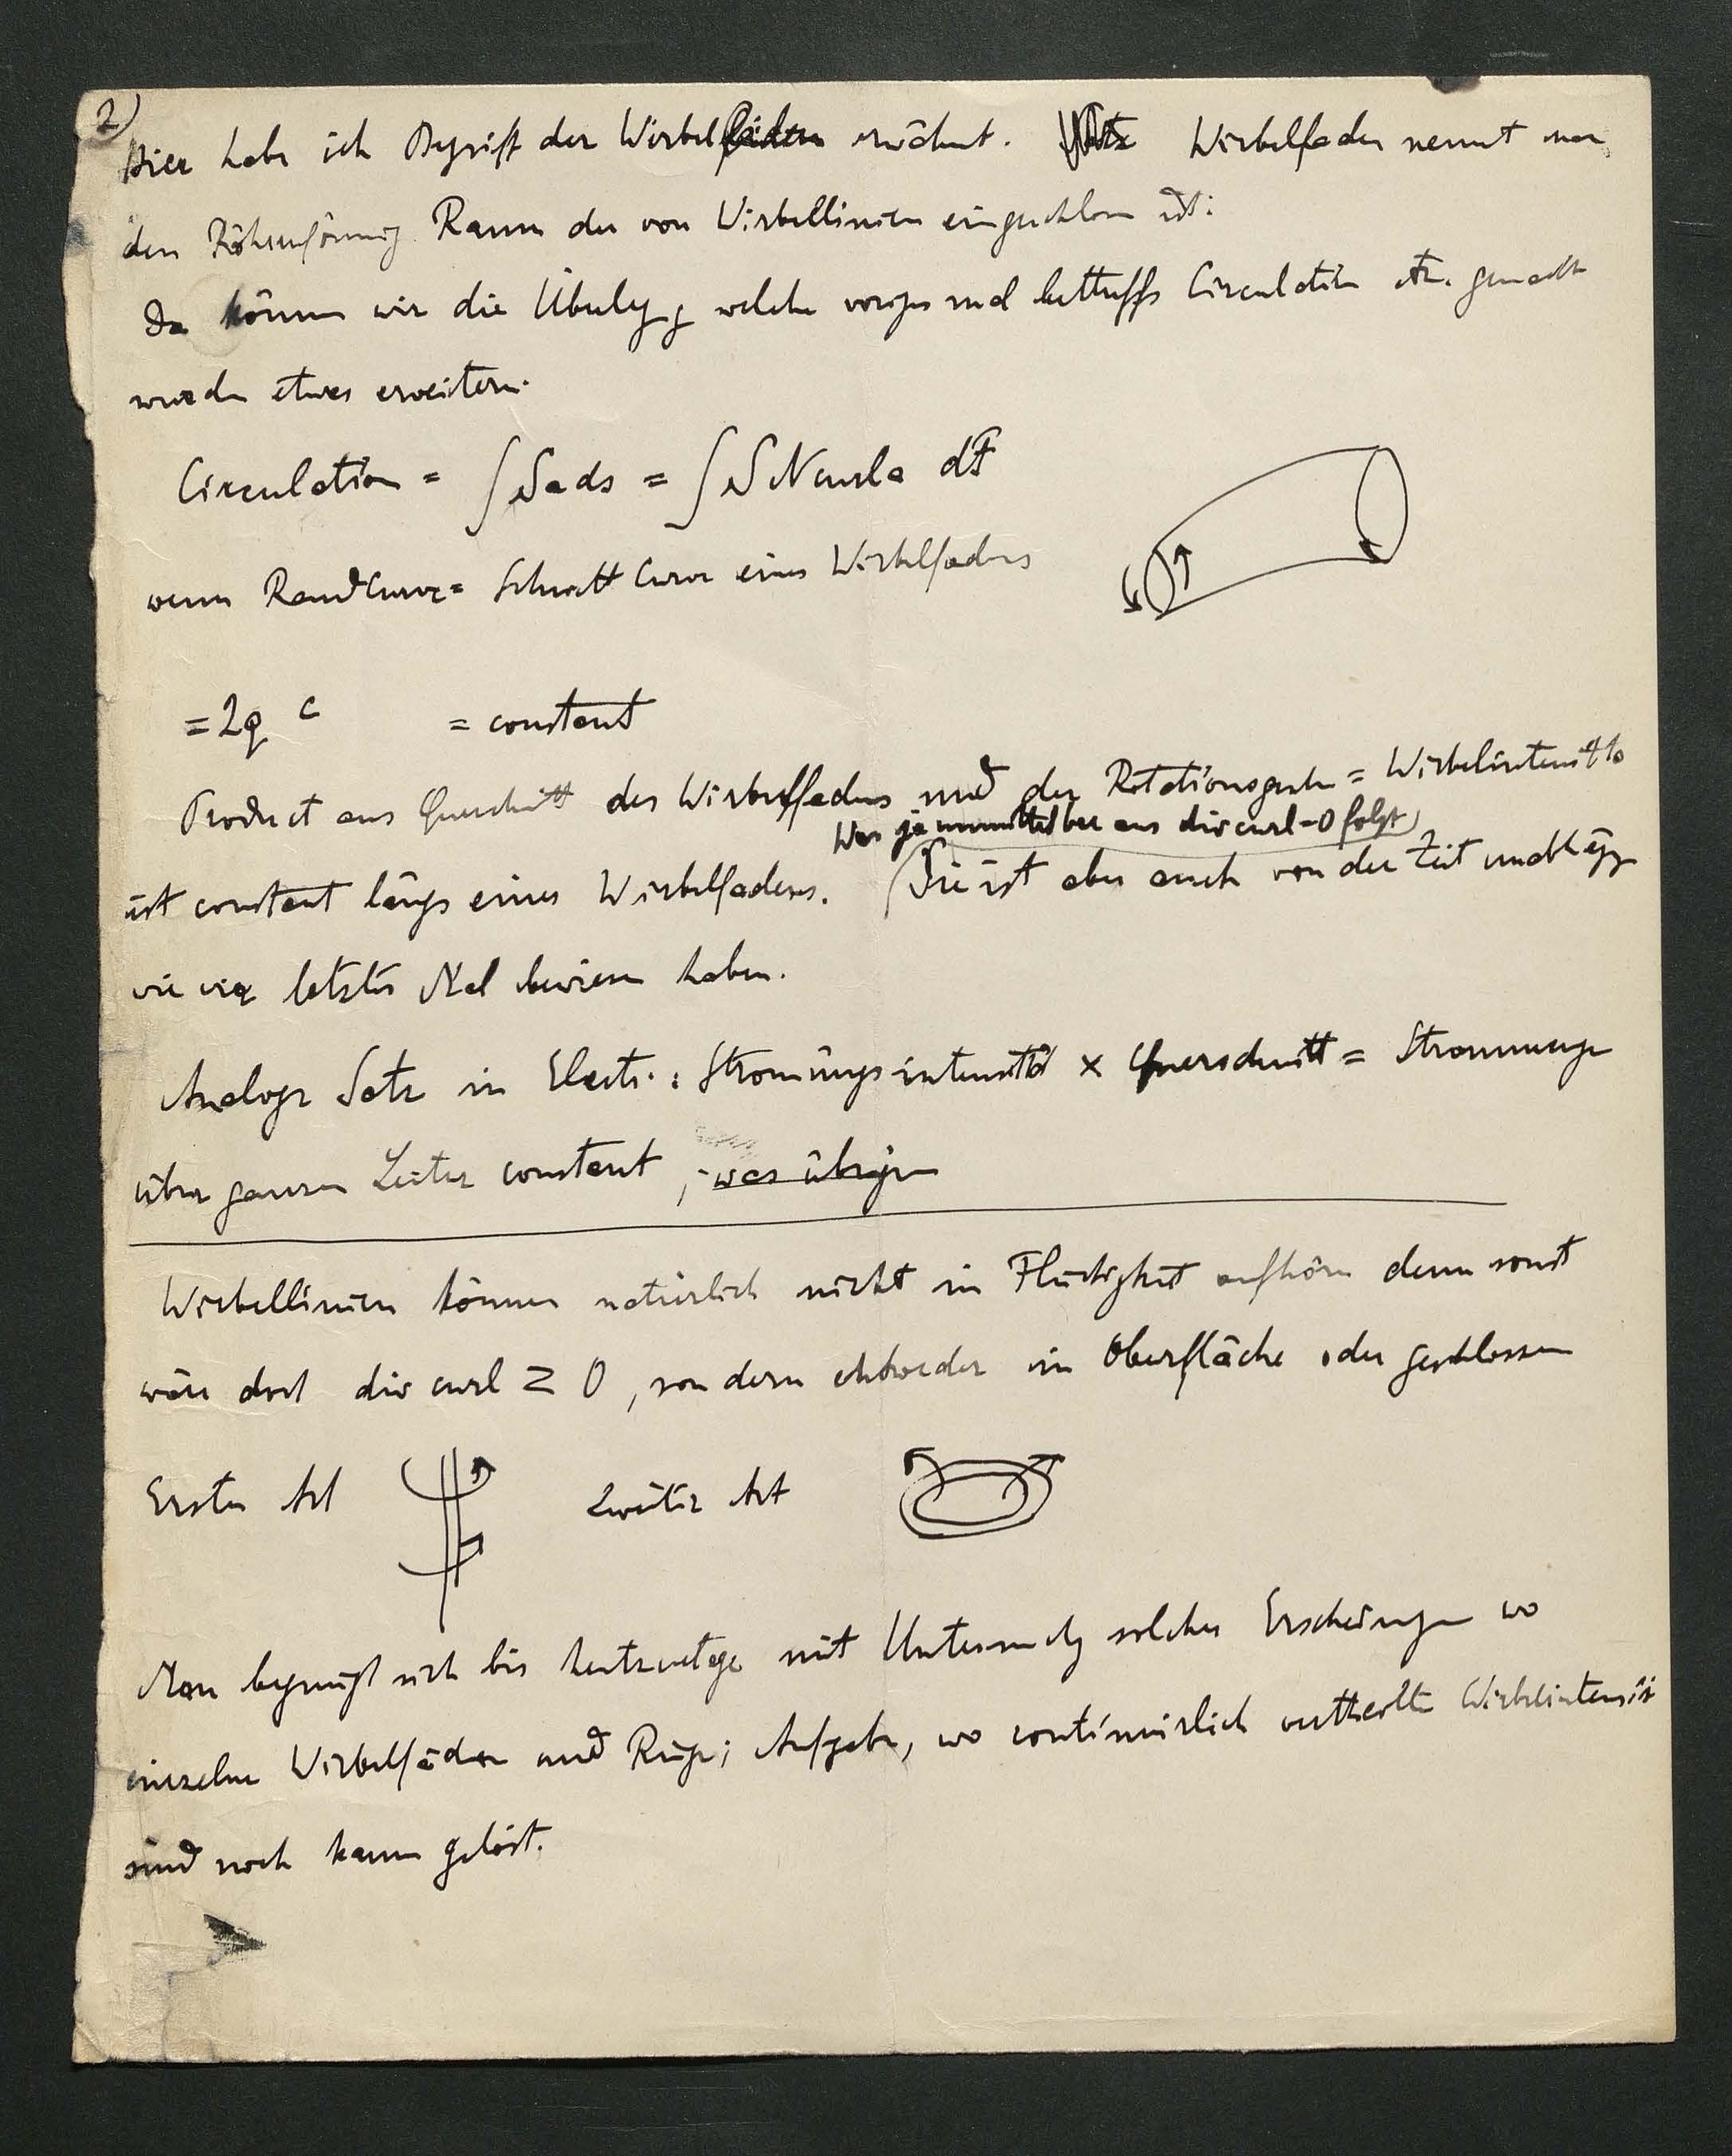 2)
Hier habe ich Begriff der Wirbelfäden erwähnt. Wirbelfaden nennt man
den Röhrenförmig Raum der von Wirbellinien eingeschlossn ist:
Da können wir die Überlegg welche voriges mal betreffs Circulation etc. gemacht
wurden etwas erweitern.
Circulation = ∫ S a ds = ∫ S N curl a dF
wenn Randcurve = Schnitt Curve eines Wirbelfadens
= 2 q c = constant
Product aus Querschnitt des Wirbelfadens und der Rotationsgesch = Wirbelintensität
Was ja unmittelbar aus div curl = 0 folgt)
ist constant längs eines Wirbelfadens. (Sie ist aber auch von der Zeit unabhägg
wie wir letztes Mal bewiesen haben.
Analoger Satz in Electr. : Strömungsintensität × Querschnitt = Strommenge
über ganzen Leiter constant, was übrigen
Wirbellinien können natürlich nicht in Flüssigkeit aufhörn denn sonst
wäre dort div curl ≷ 0, sondern entweder in Oberfläche oder geschlossen
Erster Art Zweiter Art
Man begnügt sich bis heutzutage mit Untersuchg solcher Erscheinungen wo
einzelne Wirbelfäden und Ringe; Aufgabe, wo continuirlich vertheilte Wirbelintensit
sind noch kaum gelöst.